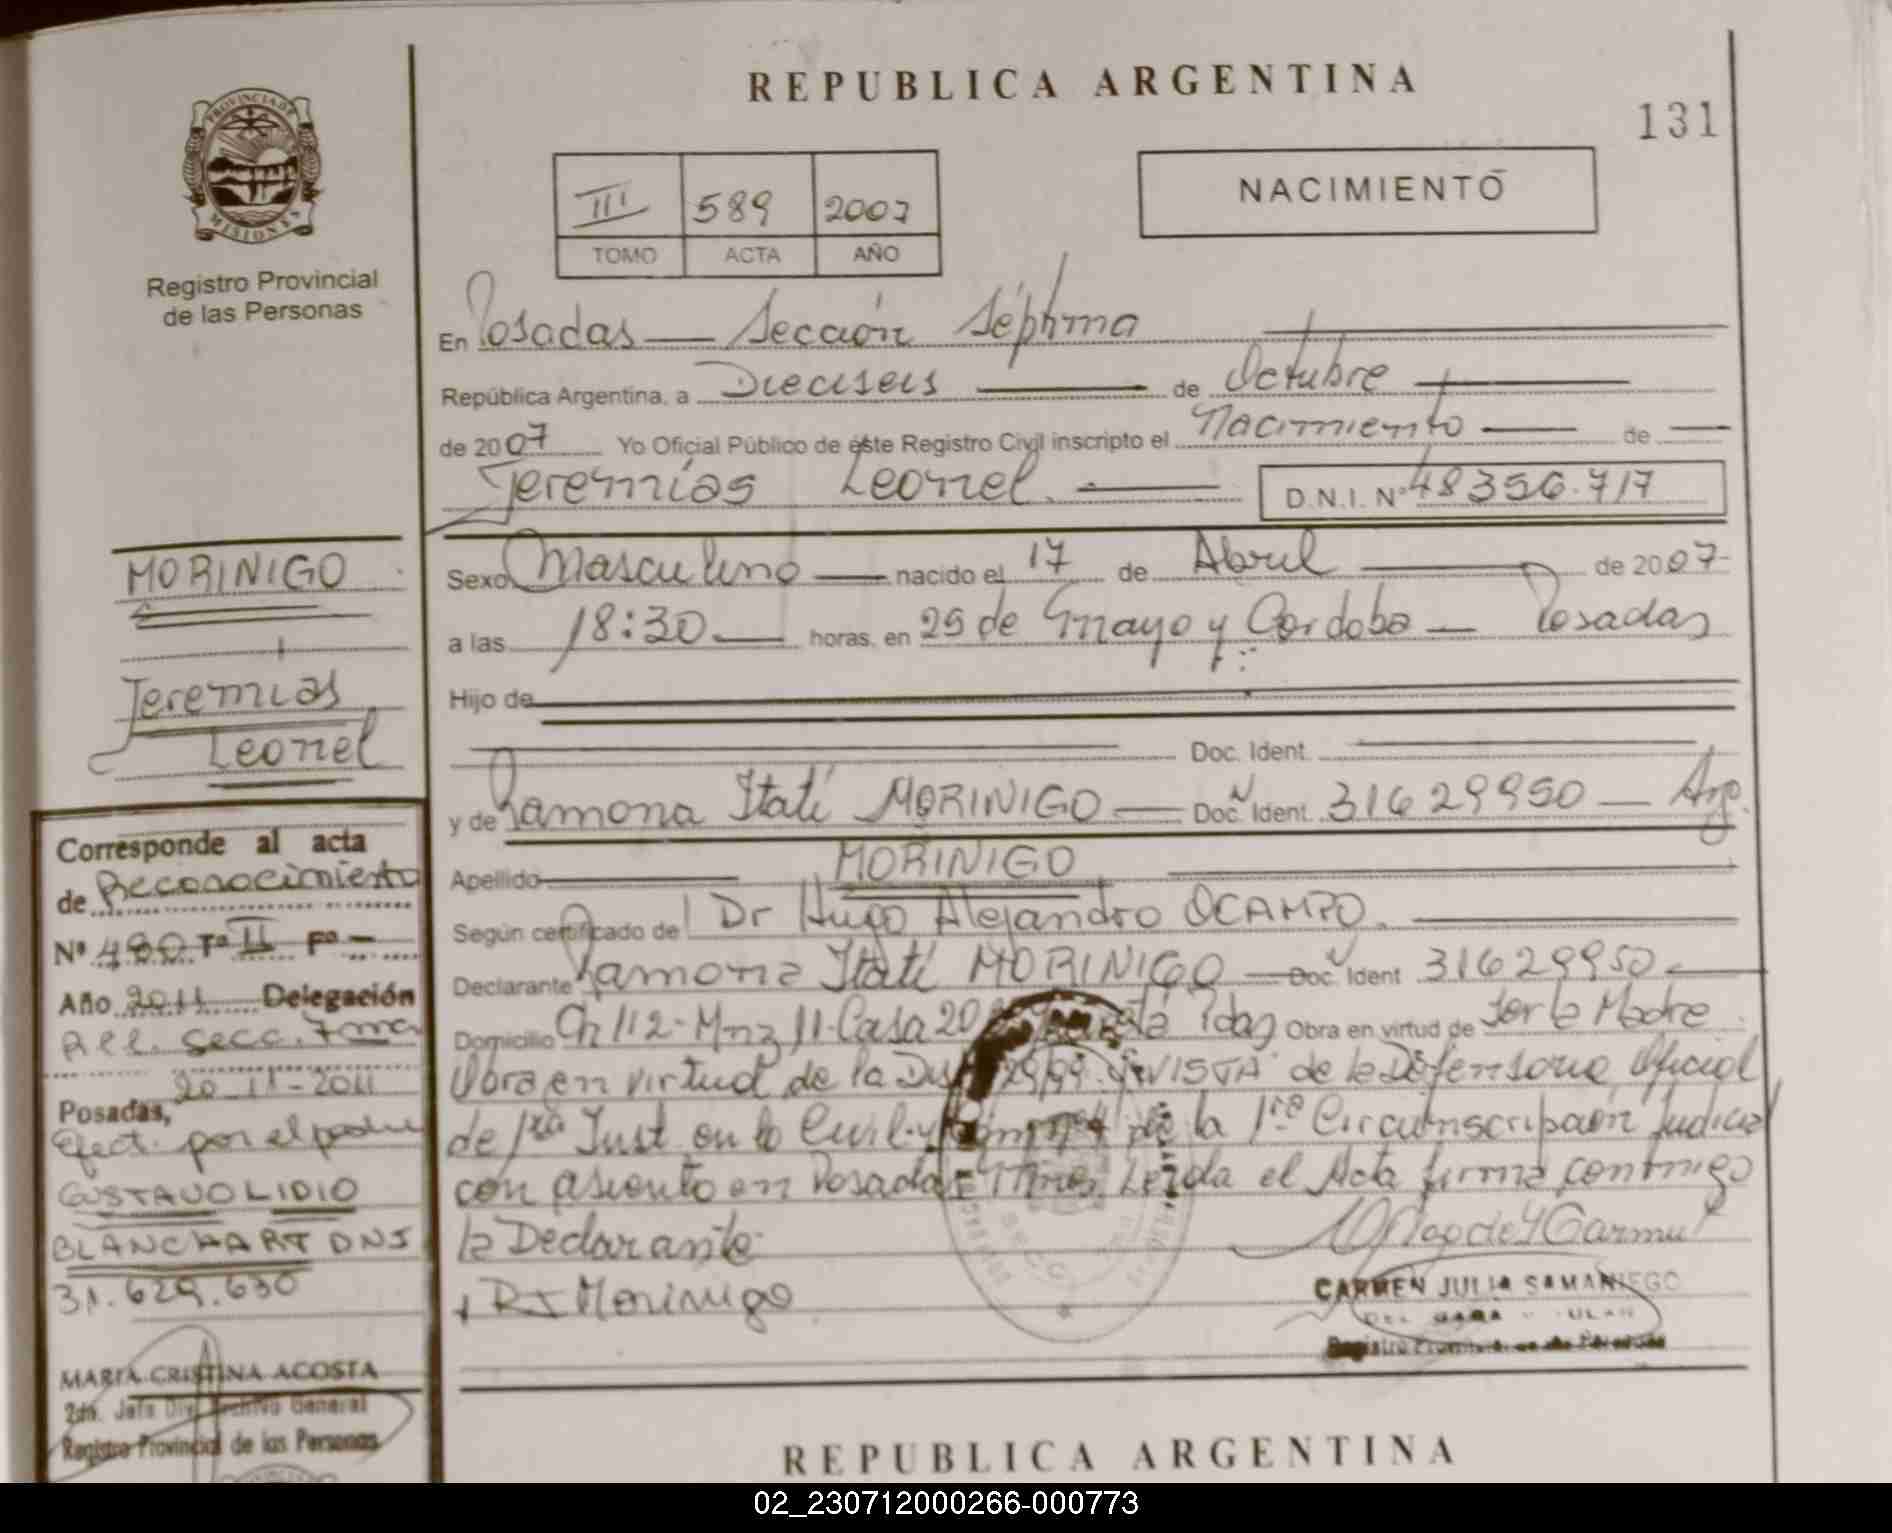 REPUBLICA ARGENTINA
131
PROVINCIA DE
MISIONES
Registro Provincial
de las Personas
III 589 2007
TOMO ACTA AÑO
NACIMIENTO
En Posadas — Sección Séptima
República Argentina, a Dieciseis de Octubre
de 2007 Yo Oficial Público de éste Registro Civil inscripto el Nacimiento — de —
Jeremías Leonel. D.N.I. Nº 48356.717
MORINIGO
Jeremias
Leonel
Sexo Masculino — nacido el 17 de Abril de 2007-
a las 18:30 — horas, en 25 de Mayo y Cordoba — Posadas
Hijo de
Doc. Ident.
y de Ramona Itatí MORINIGO — Doc. Ident. 31629950 — Arg.
Apellido MORINIGO
Según certificado de Dr Hugo Alejandro OCAMPO.
Declarante Ramona Itatí MORINIGO — Doc. Ident 31629950
Domicilio Ch 112-Mnz 11-Casa 20 Pdas Obra en virtud de Ser la Madre
Obra en virtud de la VISTA de la Defensoria Oficial
de 1ra Inst en lo Civil y de la 1ra Circunscripción Judicial
con asiento en Posadas Mnes. Leída el Acta firma conmigo
la Declarante
RI Morinigo
CARMEN JULIA SAMANIEGO
Corresponde al acta
de Reconocimiento
Nº 480 Tº II Fº —
Año 2011 Delegación
secc. 7ma
20-11-2011
Posadas,
Efect. por el padre
GUSTAVO LIDIO
BLANCHART DNI
31.629.630
MARIA CRISTINA ACOSTA
2da. Jefa Div. Archivo General
Registro Provincial de las Personas
REPUBLICA ARGENTINA
02_230712000266-000773